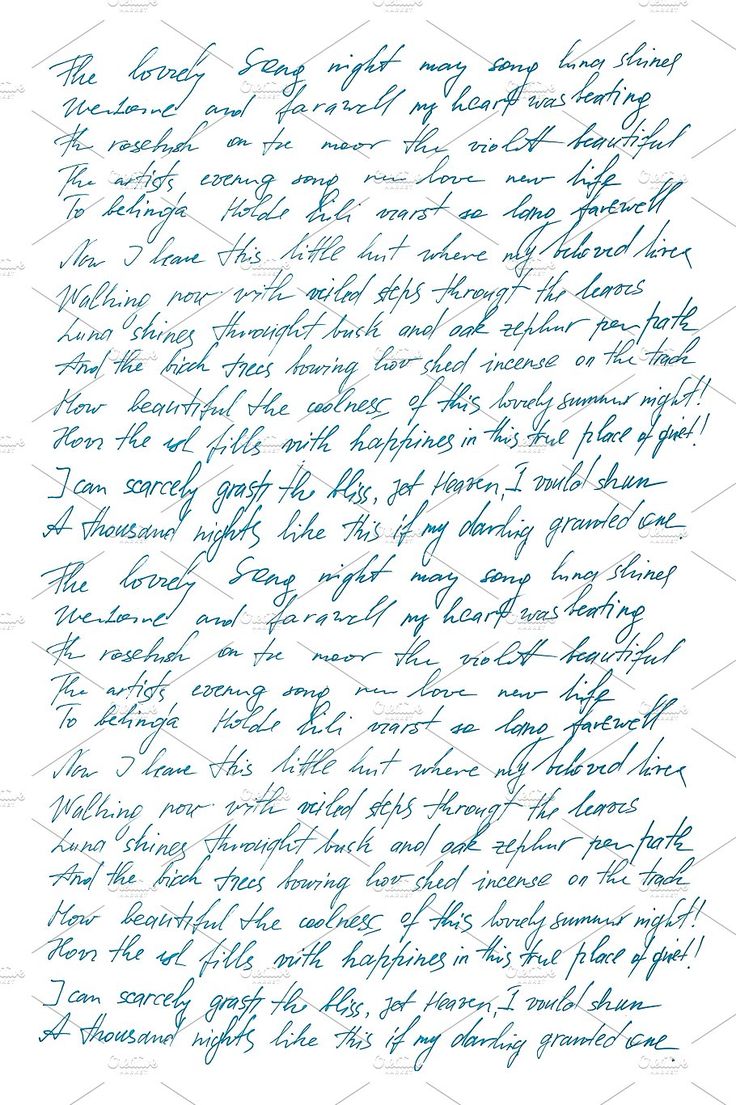 The lovely Song night may song luna shines
Welcome and farawell my heart was beating
Th rosebush on te moor the violett beautiful
The artists evening song new love new life
To belinda Holde Lili warst so long farewell
Now I leave this little hut where my beloved lives
Walking now with veiled steps througt the leaves
Luna shines throught bush and oak zephur per path
And the birch trees bowing low shed incense on the track
How beautiful the coolness of this lovely summer night!
How the fills with happines in this true place of quiet!
I can scarcely grasp the bliss, jet Heaven, I would shun
A thousand nights like this if my darling granted one.
The lovely Song night may song luna shines
Welcome and farawell my heart was beating
Th rosebush on te moor the violett beautiful
The artists evening song new love new life
To belinda Holde Lili warst so long farewell
Now I leave this little hut where my beloved lives
Walking now with veiled steps througt the leaves
Luna shines throught bush and oak zephur per path
And the birch trees bowing low shed incense on the track
How beautiful the coolness of this lovely summer night!
How the fills with happines in this true place of quiet!
I can scarcely grasp the bliss, jet Heaven, I would shun
A thousand nights like this if my darling granted one.